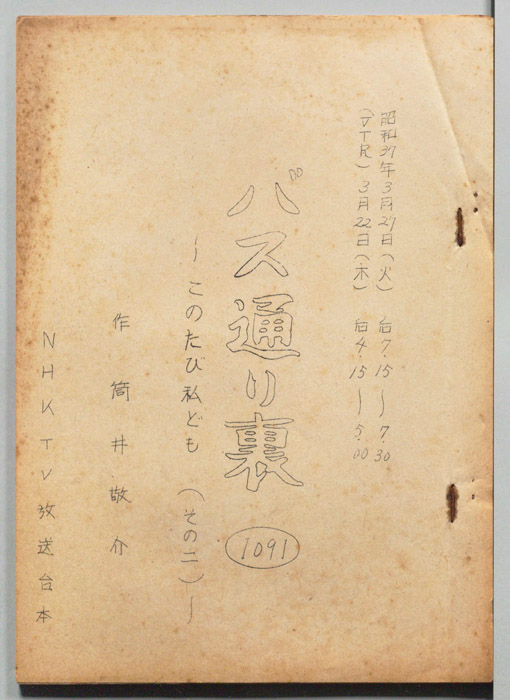 昭和37年3月27日(火) 后7.15〜7.30
(VTR) 3月22日(木) 后4.15〜5.00
バス通り裏
1091
〜このたび私ども (その二)〜
作 筒井敬介
NHK TV 放送台本